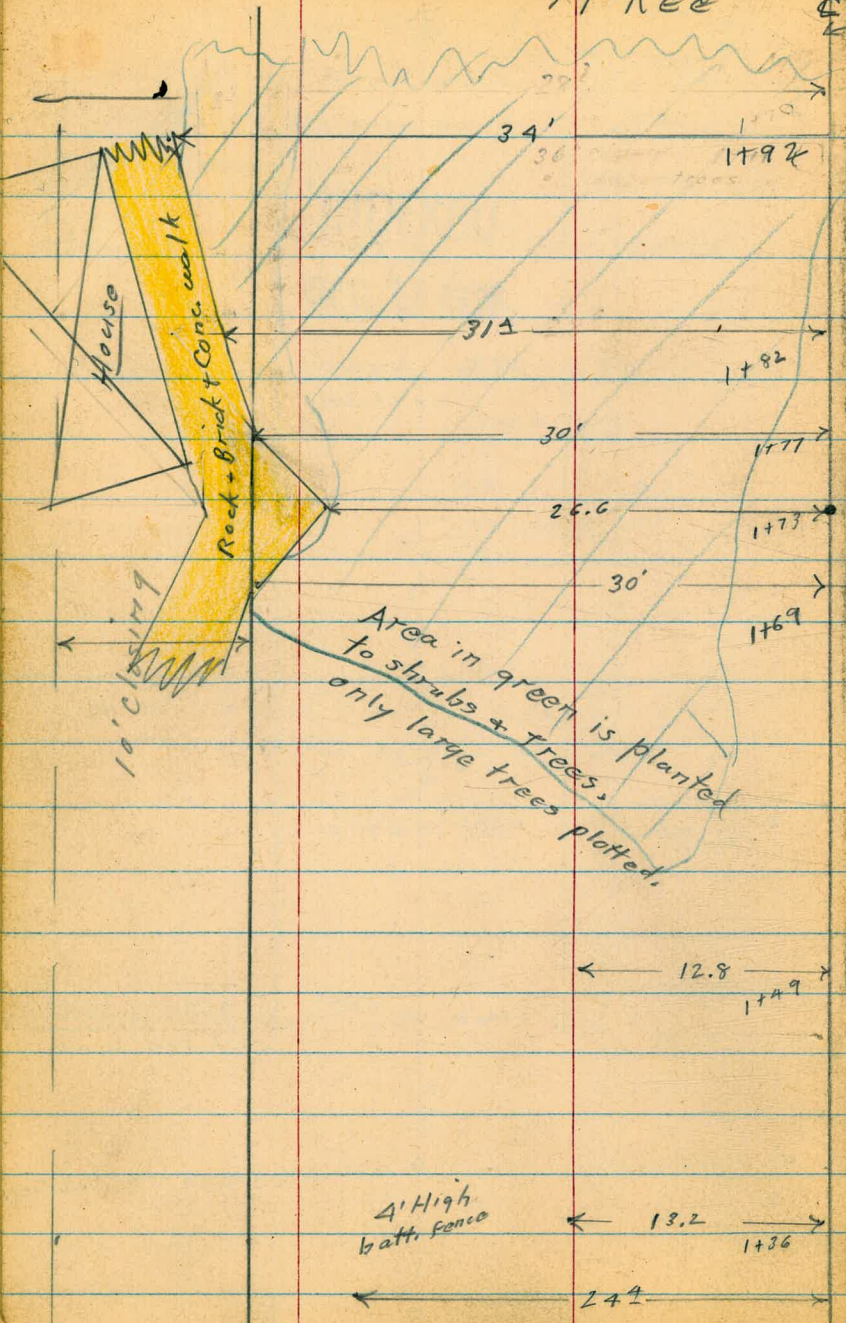 34'
1+92
House
Rock + Brick + Conc. walk
31 4
1+82
30'
1+77
26.6
1+73
30'
1+69
10' Closing
Area in green is planted
to shrubs + Trees,
only large trees plotted.
12.8
1+49
4' High
batt. fence
13.2
1+36
24 4